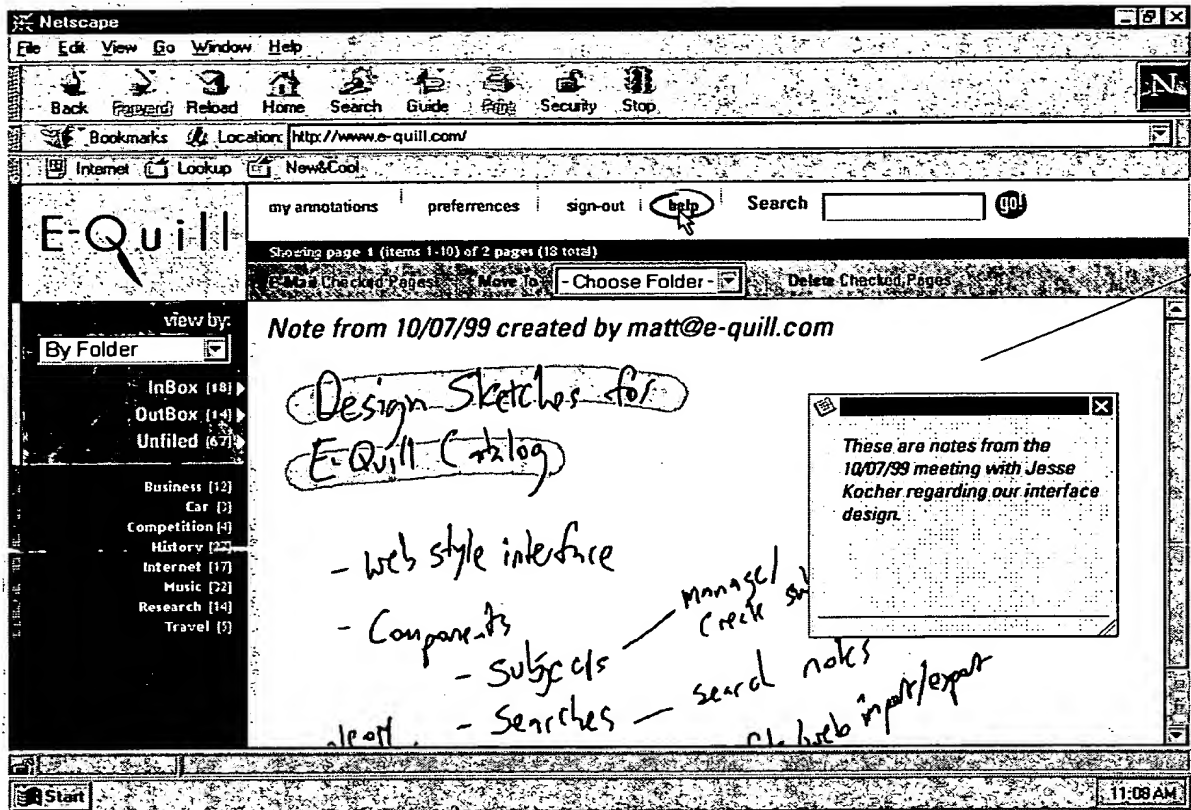 Netscape
File Edit View Go Window Help
Back Forward Reload Home Search Guide Print Security Stop
N
Bookmarks Location: http://www.e-quill.com/
Internet Lookup New&Cool
E-Quill
my annotations preferrences sign-out help Search go!
Showing page 1 (items 1-10) of 2 pages (18 total)
E-Mail Checked Pages Move To - Choose Folder - Delete Checked Pages
view by:
By Folder
InBox [18]
OutBox [14]
Unfiled [67]
Business [12]
Car [3]
Competition [4]
History [27]
Internet [17]
Music [22]
Research [14]
Travel [5]
Note from 10/07/99 created by matt@e-quill.com
Design Sketches for
E-Quill Catalog
- web style interface
- Components
- Subjects manage/
create
- Searches search notes
web import/export
These are notes from the
10/07/99 meeting with Jesse
Kocher regarding our interface
design.
Start 11:08 AM